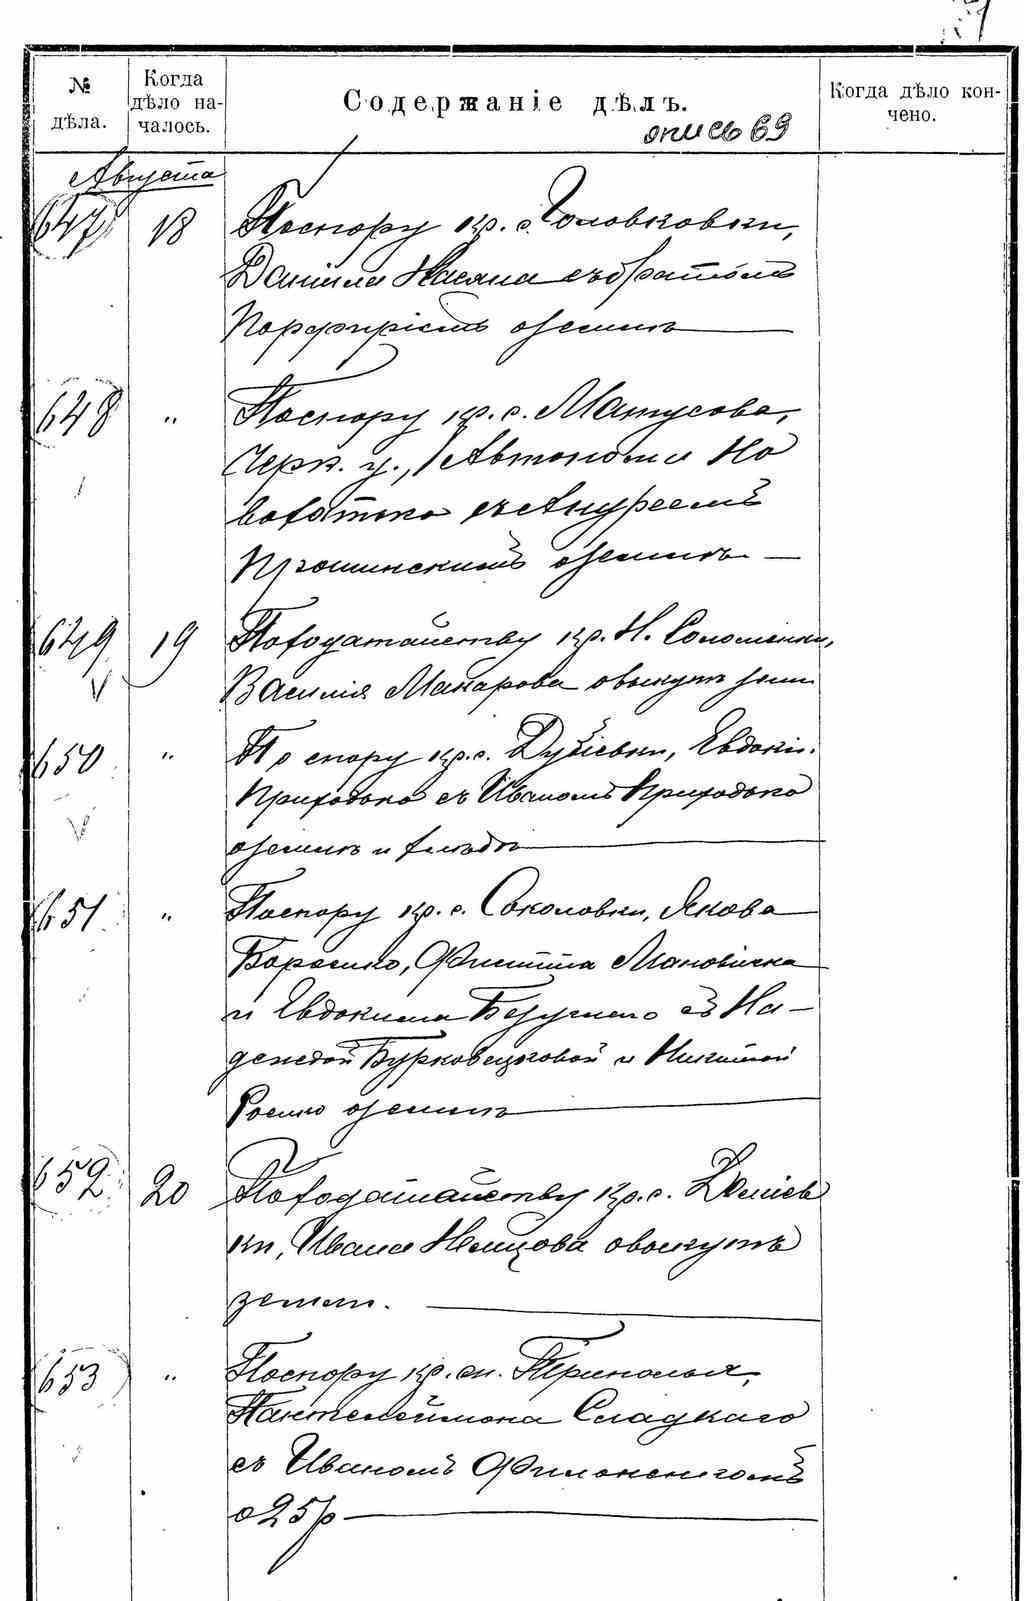 № дѣла.
Когда дѣло началось.
Содержаніе дѣлъ.
Когда дѣло кончено.
опись 69
Августа
647 18 По спору кр. с. Головковки,
Даніила Касяна съ братомъ
Порфиріемъ о землѣ
648 " По спору кр. с. Матусова,
Черк. у., Автонома Но
ватко съ Андреемъ
о землѣ
649 19 По ходатайству кр. Н. Соломенки,
Василія Макарова о выкупѣ земли
650 " По спору кр. с. Дубіевки, Евдокіи
Приходько съ Иваномъ Приходько
о землѣ и хлѣбѣ
651 " По спору кр. с. Соколовки, Якова
и Евдокима съ На-
деждой Бурковецковой и Никитой
о землѣ
652 20 По ходатайству кр. с. Даніев
ки, Ивана Немцова о выкупѣ
земли.
653 " По спору кр. м. Триполья,
Пантелеймона Сладкаго
съ Иваномъ
о 25 р